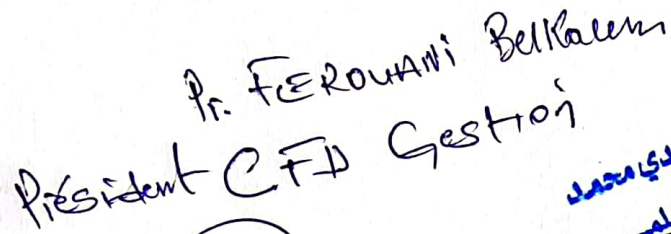 Pr. FEROUANI Belkacem
Président CFD Gestion